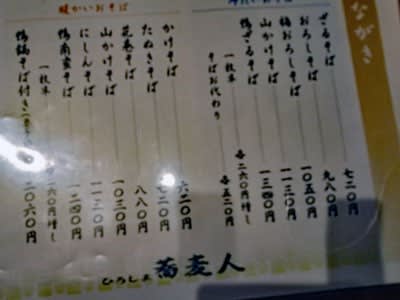 ながき
ざるそば 七二〇円
おろしそば 九八〇円
梅おろしそば 一〇五〇円
山かけそば 一一三〇円
鴨ざるそば 一三四〇円
一枚半 各二六〇円増し
そばお代わり 各五二〇円
暖かいおそば
かけそば 六二〇円
たぬきそば 七二〇円
花巻そば 八八〇円
山かけそば 一〇三〇円
にしんそば 一一三〇円
鴨南蛮そば 一二四〇円
一枚半 二六〇円増し
鴨鍋そば付き 二〇六〇円
ひろしま 蕎麦人